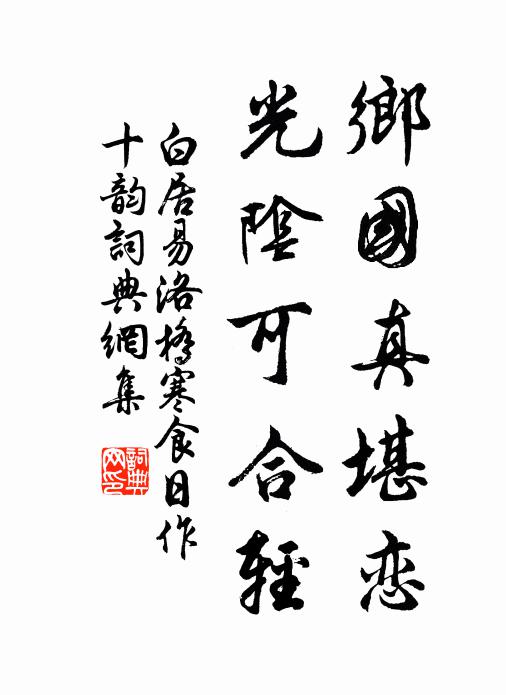 鄉國真堪恋
光陰可合輕
白居易洛橋寒食日作
十韵詞典網集
詞典
网印